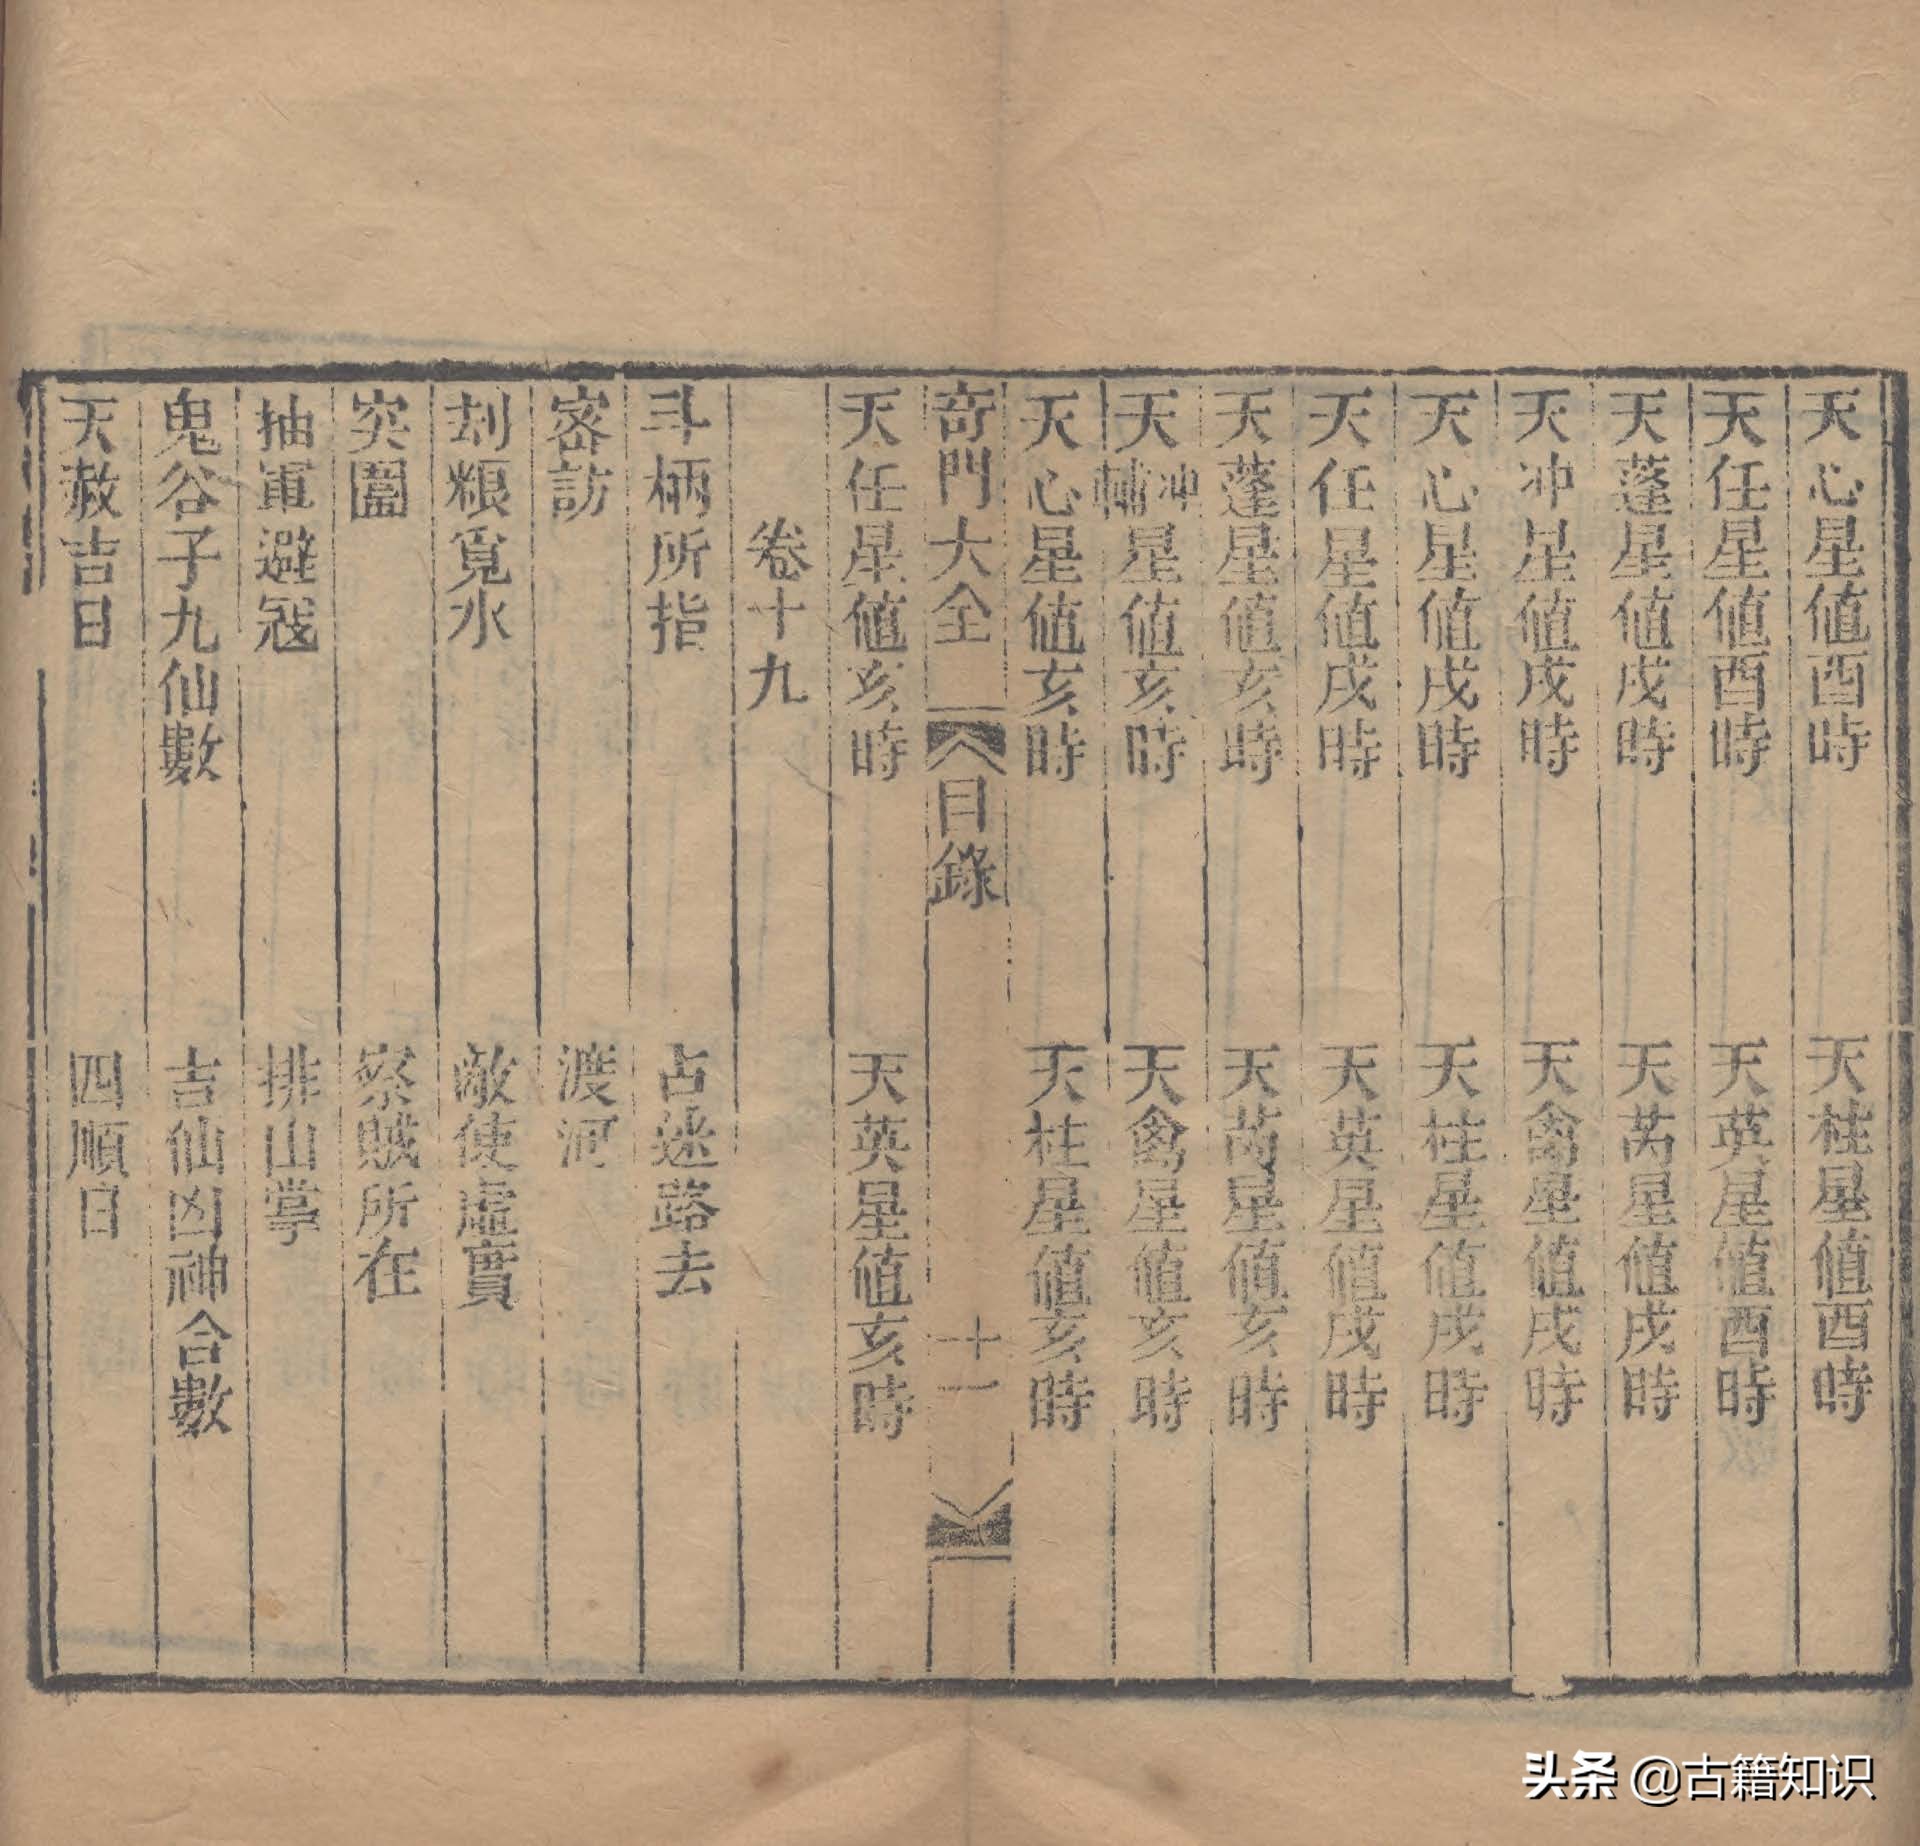 天心星值酉時　天柱星值酉時
天任星值酉時　天英星值酉時
天蓬星值戌時　天芮星值戌時
天冲星值戌時　天禽星值戌時
天心星值戌時　天柱星值戌時
天任星值戌時　天英星值戌時
天蓬星值亥時　天芮星值亥時
天冲輔星值亥時　天禽星值亥時
天心星值亥時　天柱星值亥時
奇門大全　目錄　十一
天任星值亥時　天英星值亥時
卷十九
斗柄所指　占迷路去
密訪　渡河
刦粮覓水　敵使虛實
突圍　察賊所在
抽軍避冦　排山掌
鬼谷子九仙數　吉仙凶神合數
天赦吉日　四順日
头条 @古籍知识